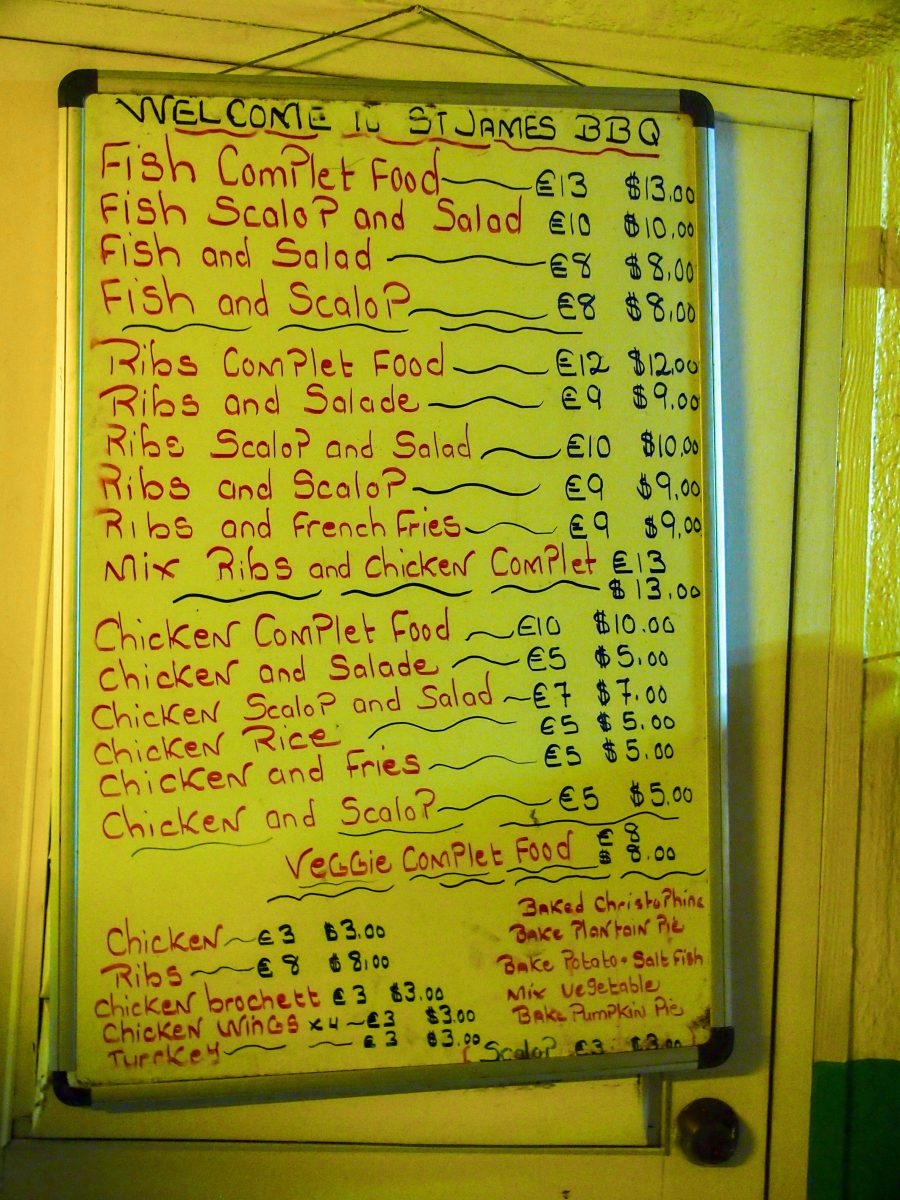 WELCOME TO ST JAMES BBQ
Fish Complet Food €13 $13.00
Fish Scalop and Salad €10 $10,00
Fish and Salad €8 $8,00
Fish and Scalop €8 $8,00
Ribs Complet Food €12 $12.00
Ribs and Salade €9 $9.00
Ribs Scalop and Salad €10 $10.00
Ribs and Scalop €9 $9,00
Ribs and French Fries €9 $9,00
Mix Ribs and Chicken Complet €13
$13.00
Chicken Complet Food €10 $10.00
Chicken and Salade €5 $5.00
Chicken Scalop and Salad €7 $7.00
Chicken Rice €5 $5.00
Chicken and Fries €5 $5.00
Chicken and Scalop €5 $5.00
Veggie Complet Food €8
$8.00
Chicken €3 $3.00
Ribs €8 $8,00
Chicken brochett €3 $3.00
Chicken Wings x4 €3 $3.00
Turrkey €3 $3.00
Baked Christophine
Bake Plantain Pie
Bake Potato + Salt Fish
Mix Vegetable
Bake Pumpkin Pie
Scalop €3 $3.00